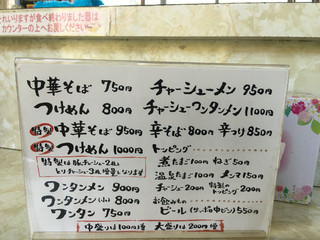 れいりますが食べ終わりました器は
カウンターの上へお戻しください
中華そば 750円
つけめん 800円
特製 中華そば 950円
特製 つけめん 1000円
特製は豚チャーシュー2枚、
とりチャーシュー3枚、増量になります
ワンタンメン 900円
ワンタンメン(小) 800円
ワンタン 750円
チャーシューメン 950円
チャーシューワンタンメン 1100円
辛そば 800円 辛つけ 850円
トッピング
煮たまご 100円 ねぎ 50円
温泉たまご 100円 メンマ 150円
チャーシュー 200円 特製のトッピング 200円
お飲みもの
ビール(サッポロ中ビン) 550円
中盛りは100円増 大盛りは200円増